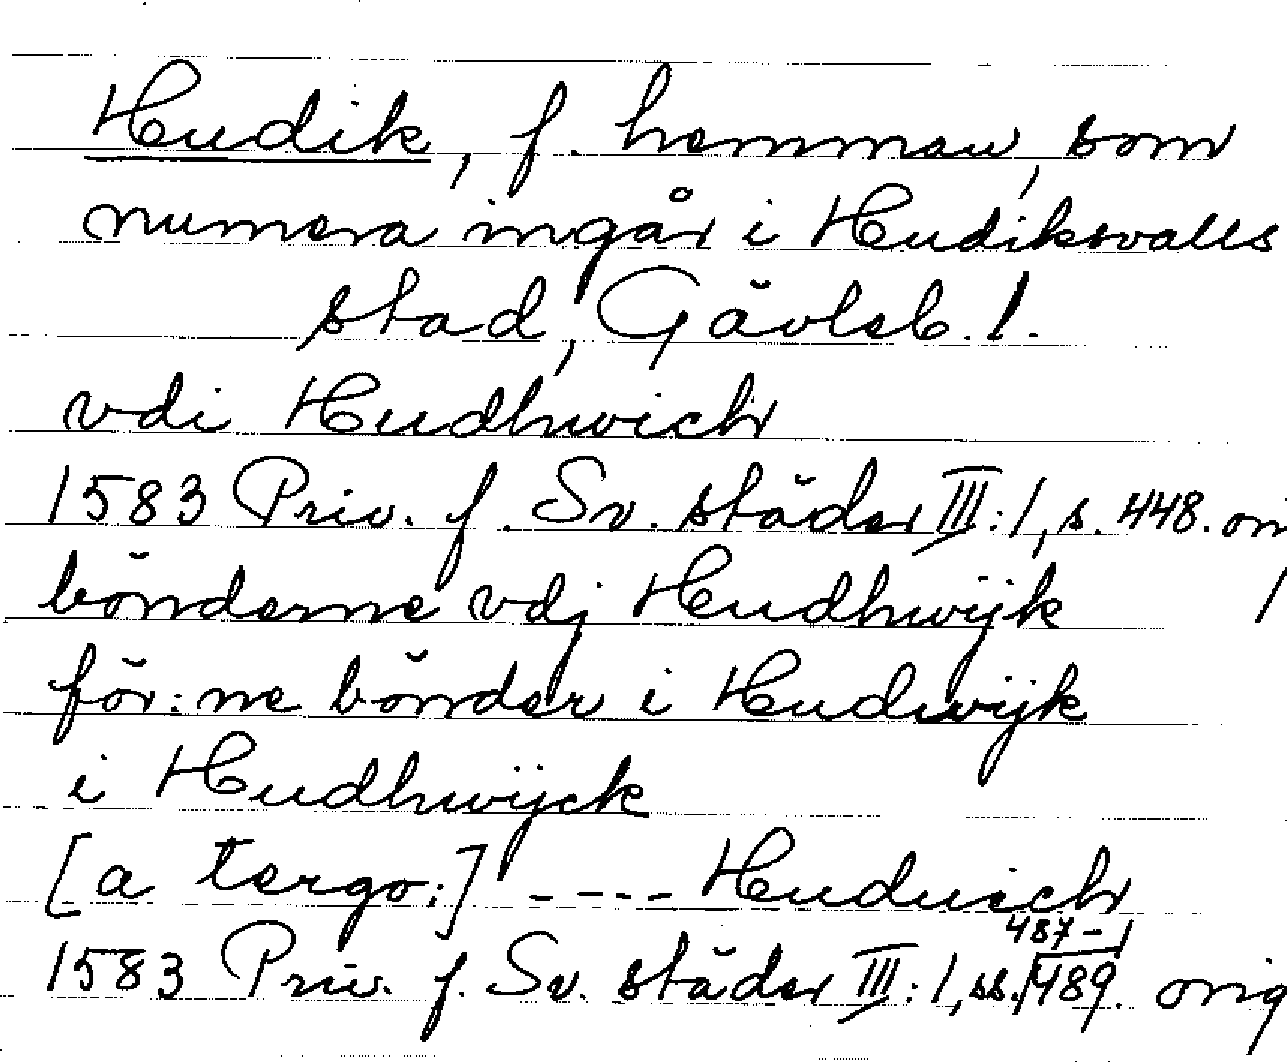 Hudik, f. hemman, som
numera ingår i Hudiksvalls
stad, Gävleb. l.
vdi Hudhwich
1583 Priv. f. Sv. städer III:1, s. 448.
bönderne vdj Hudhwijk
för:ne bönder i Hudwijk
i Hudhwijck
[a tergo:] ---- Huduich
1583 Priv. f. Sv. städer III:1, ss. 487-489. orig